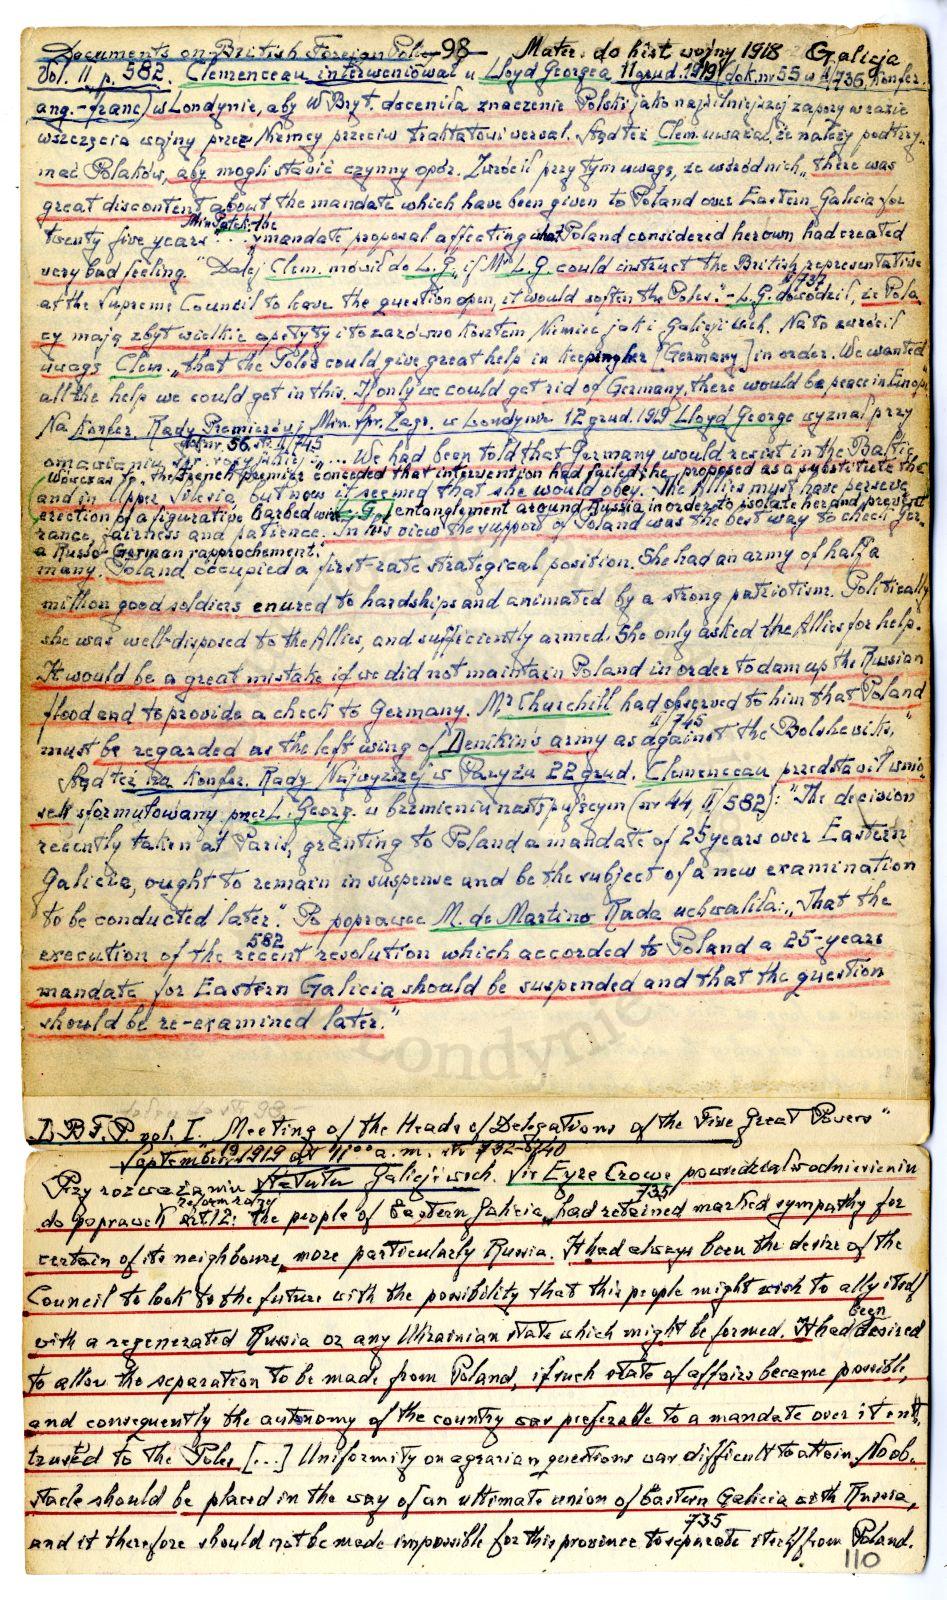 Documents on British Foreign Policy 98 Mater. do hist. wojny 1918 Galicja
Vol. II p. 582. Clemenceau interweniował u Lloyd Georgea 11 grud. 1919 (dok. nr 55 II/736, Konfer.
ang.-franc) w Londynie, aby W Bryt. doceniła znaczenie Polski jako najsilniejszej zapory w razie
wszczęcia wojny przez Niemcy przeciw traktatowi wersal. Stąd też Clem. uważał, że należy podtrzy-
mać Polaków, aby mogli stawić czynny opór. Zwrócił przy tym uwagę, że wśród nich „there was
great discontent about the mandate which have been given to Poland over Eastern Galicia for
twenty five years ... Min Patek: the mandate proposal affecting what Poland considered her own had created
very bad feeling." Dalej Clem. mówił do L.G. „if Mr L.G. could instruct the British representative
at the Supreme Council to leave the question open, it would soften the Poles." - L.G. dowodził, II/737 że Pola
cy mają zbyt wielkie apetyty i to zarówno kosztem Niemiec jak i Galicji wsch. Na to zwrócił
uwagę Clem. „that the Poles could give great help in keeping her [Germany] in order. We wanted
all the help we could get in this. If only we could get rid of Germany, there would be peace in Europe
Na Konfer. Rady Premierów i Min. Spr. Zagr. w Londynie 12 grud. 1919 Lloyd George wyznał przy
dok nr. 56. str. II/745
omawianiu spr. rosyjskiej: „... We had been told that Germany would resist in the Baltic
Wówczas też the French premier conceded that intervention had failed; he proposed as a substitute the
and in Upper Silesia but now it seemed that she would obey. The Allies must have perseve
erection of a figurative barbed wire [L.G.] entanglement around Russia in order to isolate her and prevent
rance, fairness and patience. In his view the support of Poland was the best way to check Ger
a Russo-German rapprochement.
many. Poland occupied a first-rate strategical position. She had an army of half a
million good soldiers enured to hardships and animated by a strong patriotism. Politically
she was well-disposed to the Allies, and sufficiently armed. She only asked the Allies for help.
It would be a great mistake if we did not maintain Poland in order to dam up the Russian
flood and to provide a check to Germany. Mr Churchill had observed to him that Poland
II/745
must be regarded as the left wing of Denikin's army as against the Bolsheviks,"
Stąd też na Konfer. Rady Najwyższej w Paryżu 22 grud. Clemenceau przedstawił wnio-
sek sformułowany przez L. Georg. w brzmieniu następującym (nr 44, II/582): "The decision
recently taken at Paris, granting to Poland a mandate of 25 years over Eastern
Galicia, ought to remain in suspense and be the subject of a new examination
to be conducted later." Po poprawce M. de Martino Rada uchwaliła: „That the
582
execution of the recent resolution which accorded to Poland a 25-years
mandate for Eastern Galicia should be suspended and that the question
should be re-examined later."
Londynie
D.B.F.P. vol. I. Meeting of the Heads of Delegations of the Five Great Powers"
September 19 1919 at 11:00 a.m. str 732-740
Przy rozważaniu Statutu Galicji wsch. Sir Eyre Crowe powiedział w odniesieniu
735
do poprawek art. 12: the people of Eastern Galicia „had retained marked sympathy for
certain of its neighbours, more particularly Russia. It had always been the desire of the
Council to look to the future with the possibility that this people might wish to ally itself
with a regenerated Russia or any Ukrainian state which might be formed. It had been desired
to allow the separation to be made from Poland, if such state of affairs became possible,
and consequently the autonomy of the country was preferable to a mandate over it ent-
trusted to the Poles [...] Uniformity on agrarian questions was difficult to attain. No ob-
stacle should be placed in the way of an ultimate union of Eastern Galicia with Russia,
735
and it therefore should not be made impossible for this province to separate itself from Poland.
110